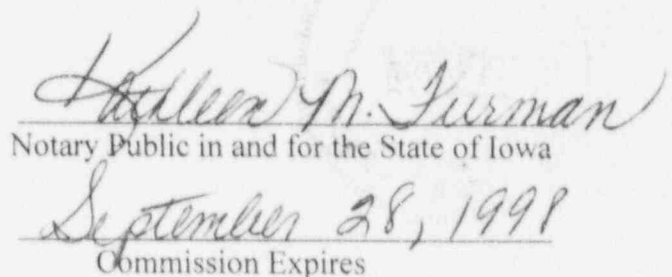 Kathleen M. Furman
Notary Public in and for the State of Iowa
September 28, 1998
Commission Expires